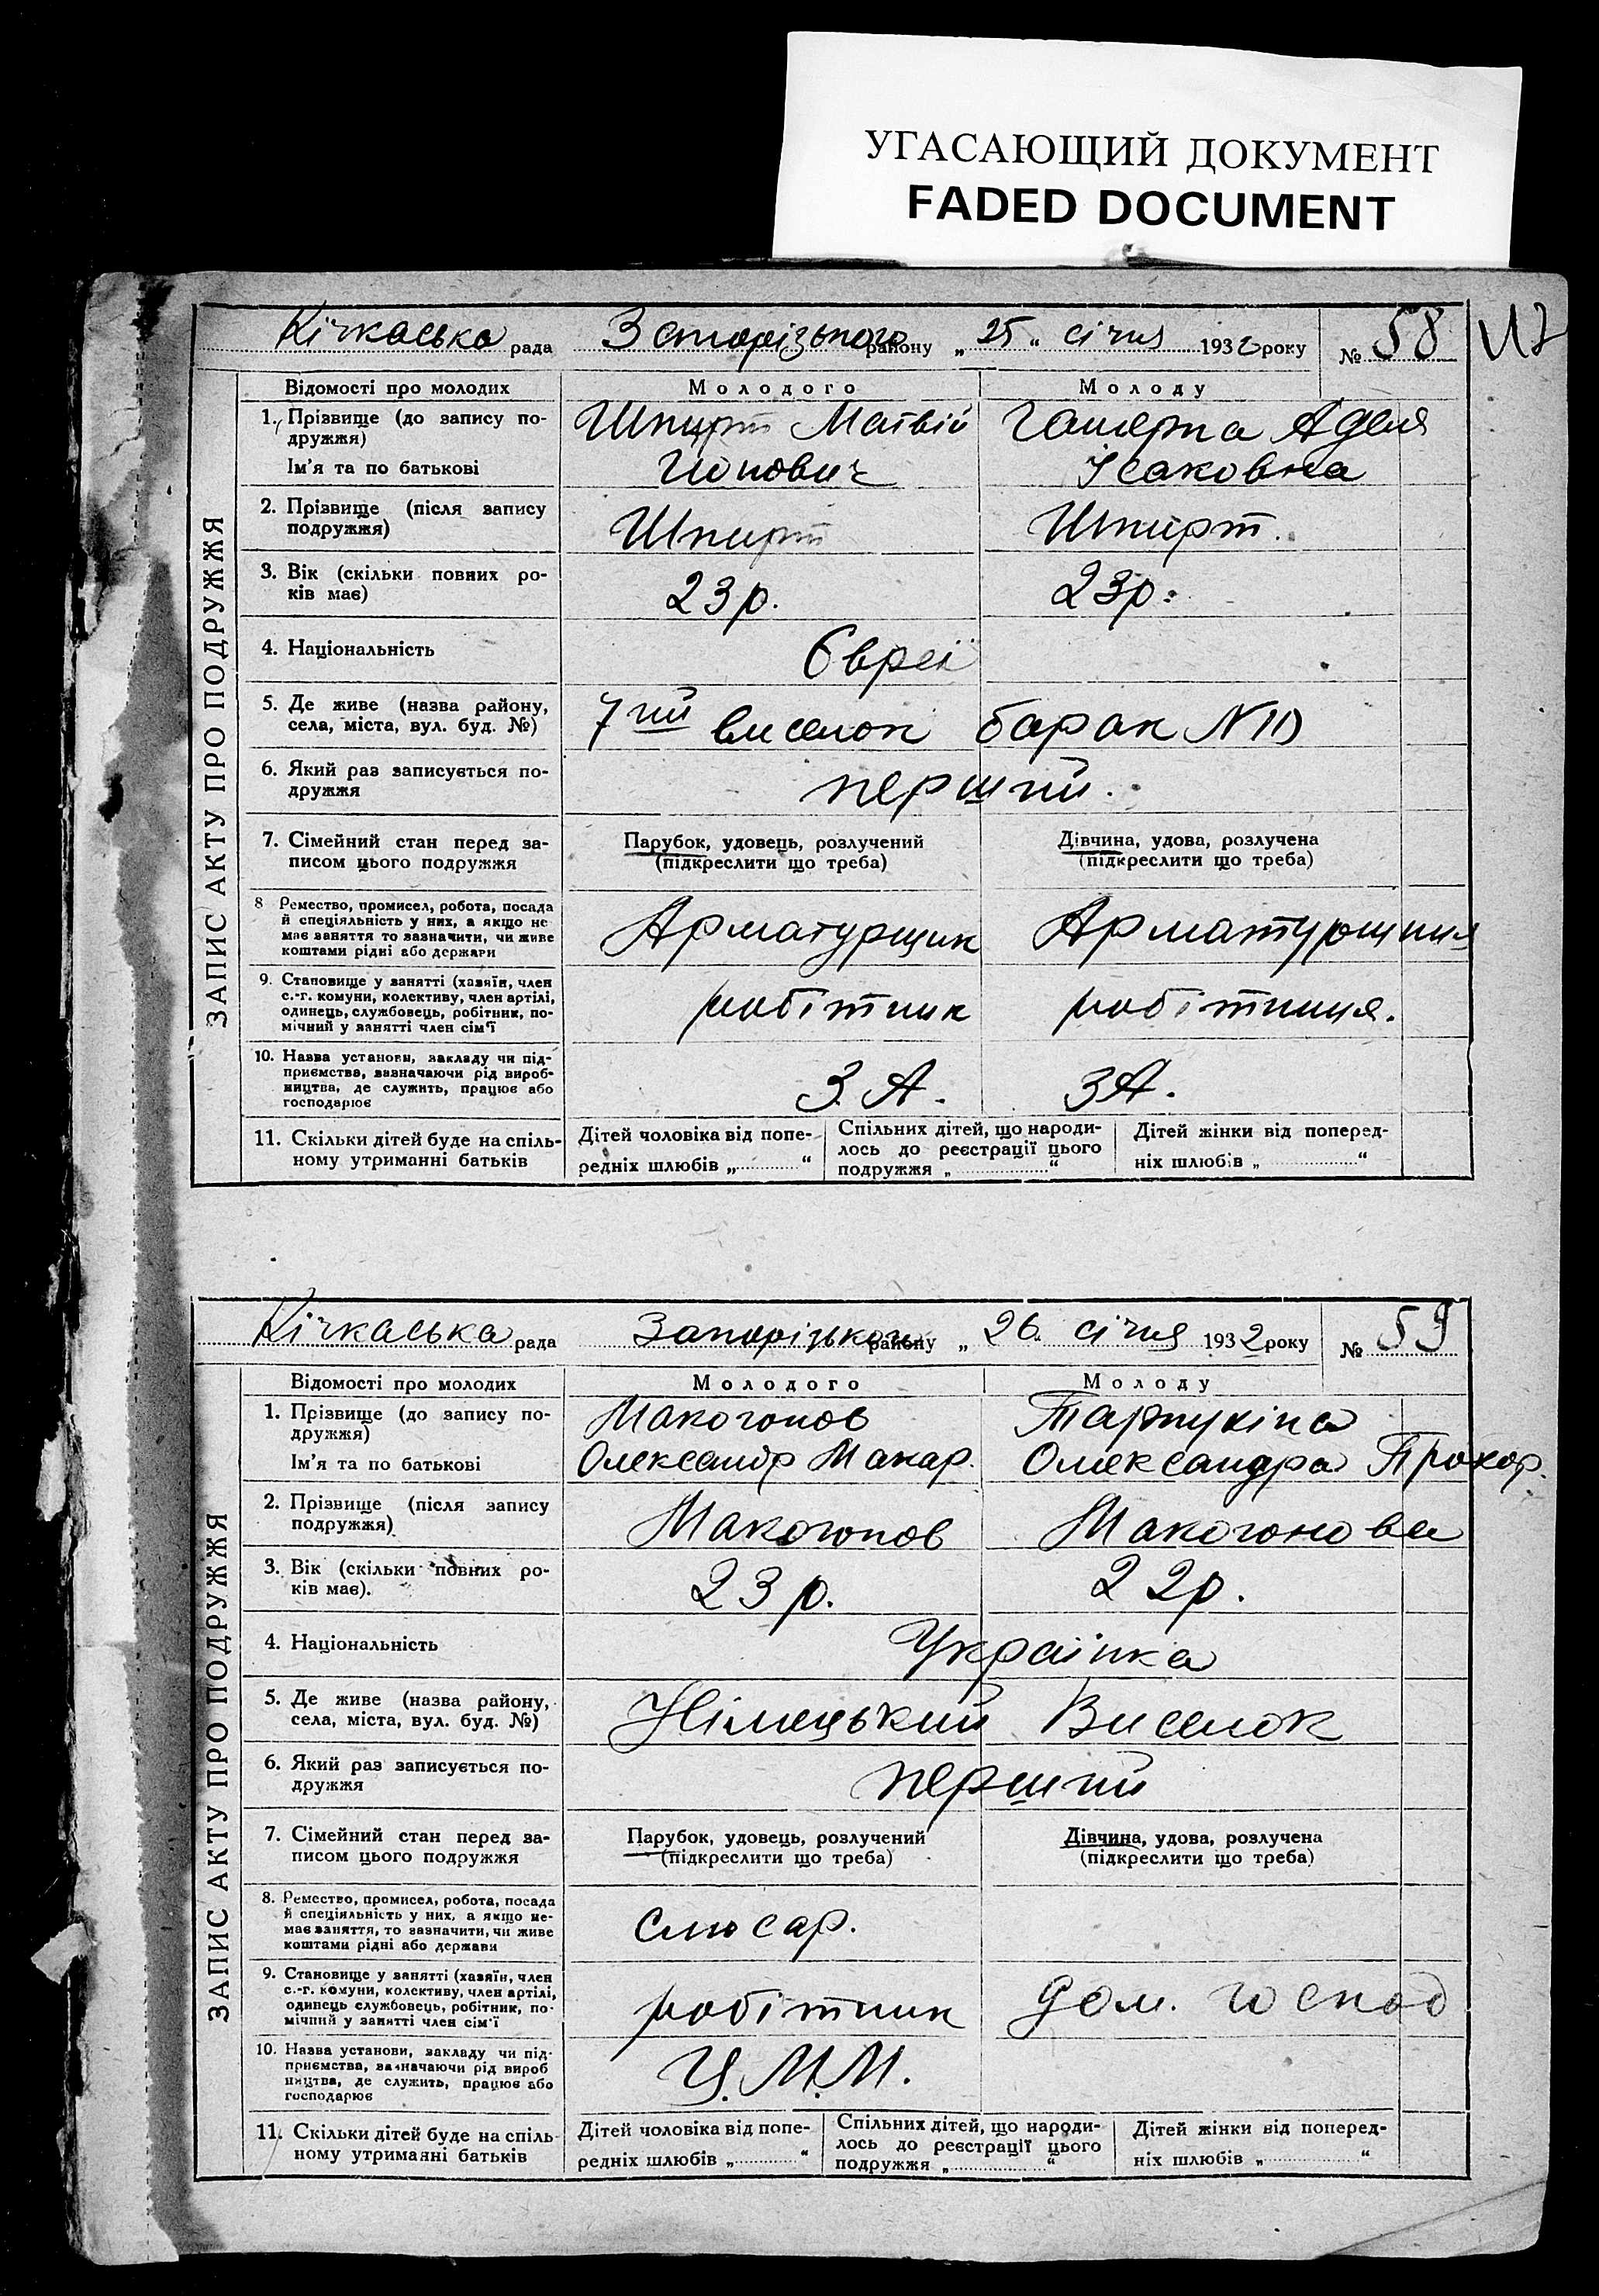 УГАСАЮЩИЙ ДОКУМЕНТ
FADED DOCUMENT
ЗАПИС АКТУ ПРО ПОДРУЖЖЯ
Кічкаська рада районну „25“ січня 1932 року № 58
Відомості про молодих Молодого Молоду
1. Прізвище (до запису по-
дружжя)
Шпирт Матвій Аделя
Ім'я та по батькові Ісаковна
2. Прізвище (після запису
подружжя)
Шпирт Шпирт.
3. Вік (скільки повних ро-
ків має)
23 р. 23 р.
4. Національність Євреї
5. Де живе (назва району,
села, міста, вул. буд. №)
7ий виселок барак N
6. Який раз записується по-
дружжя
перший.
7. Сімейний стан перед за-
писом цього подружжя
Парубок, удовець, розлучений
(підкреслити що треба)
Дівчина, удова, розлучена
(підкреслити що треба)
8 Ремество, промисел, робота, посада
й спеціяльність у них, а якщо не
має заняття то зазначити, чи живе
коштами рідні або держави
Арматурщик Арматурщиця
9. Становище у занятті (хазяїн, член
с.-г. комуни, колективу, член артілі,
одинець, службовець, робітник, по-
мічний у занятті член сім'ї
робітник робітниця.
10. Назва установи, закладу чи під-
приємства, зазначаючи рід вироб-
ництва, де служить, працює або
господарює
З. А. ЗА.
11. Скільки дітей буде на спіль-
ному утриманні батьків
Дітей чоловіка від попе-
редніх шлюбів „ “
Спільних дітей, що народи-
лось до реєстрації цього
подружжя „ “
Дітей жінки від поперед-
ніх шлюбів „ “
ЗАПИС АКТУ ПРО ПОДРУЖЖЯ
Кічкаська рада Запорізького району „ 26 січня 1932 року № 59
Відомості про молодих Молодого Молоду
1. Прізвище (до запису по-
дружжя)
Макогонов
Ім'я та по батькові Олександр Макар. Олександра Прохор.
2. Прізвище (після запису
подружжя)
Макогонов Макогонова
3. Вік (скільки повних ро-
ків має).
23 р. 22 р.
4. Національність Українка
5. Де живе (назва району,
села, міста, вул. буд. №)
Німецький Виселок
6. Який раз записується по-
дружжя
перший
7. Сімейний стан перед за-
писом цього подружжя
Парубок, удовець, розлучений
(підкреслити що треба)
Дівчина, удова, розлучена
(підкреслити що треба)
8. Ремество, промисел, робота, посада
й спеціяльність у них, а якщо не-
має заняття, то зазначити, чи живе
коштами рідні або держави
слюсар.
9. Становище у занятті (хазяїн, член
с.-г. комуни, колективу, член артілі,
одинець службовець, робітник, по-
мічний у занятті член сім'ї
робітник дом. господ
10. Назва установи, закладу чи під-
приємства, зазначаючи рід вироб
ництва, де служить, працює або
господарює
Ц. М. М.
11. Скільки дітей буде на спіль-
ному утриманні батьків
Дітей чоловіка від попе-
редніх шлюбів „ “
Спільних дітей, що народи-
лось до реєстрації цього
подружжя „ “
Дітей жінки від поперед-
ніх шлюбів „ “